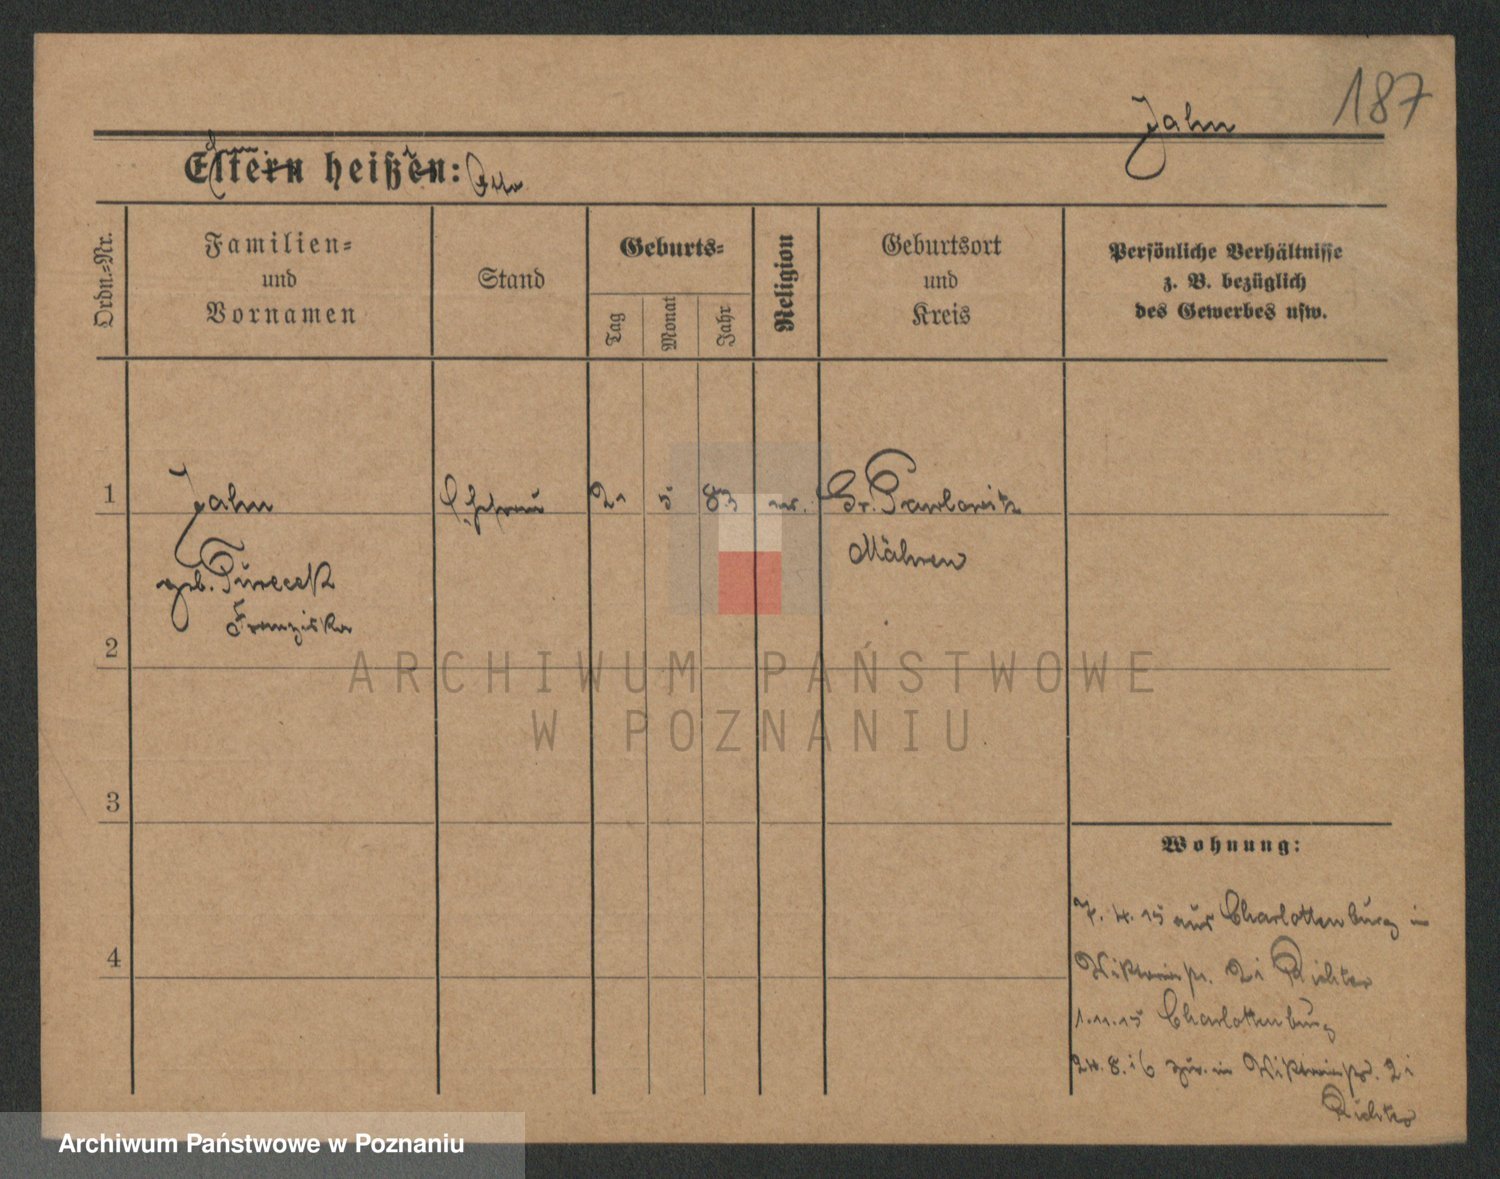 187
Jahn
Eltern heißen: Otto
Ordn.-Nr.
Familien-
und
Vornamen
Stand
Geburts-
Tag
Monat
Jahr
Religion
Geburtsort
und
Kreis
Persönliche Verhältnisse
z. B. bezüglich
des Gewerbes usw.
1
Jahn
Ehefrau
21
5
83
Gr. Pawlowitz
Mähren
geb. Turececk
Franziska
2
ARCHIWUM PAŃSTWOWE
W POZNANIU
3
Wohnung:
7. 4. 15 aus Charlottenburg in
Viktoriastr. 21 Richter
1. 11. 15 Charlottenburg
4
24. 8. 16 zur. in Viktoriastr. 21
Richter
Archiwum Państwowe w Poznaniu